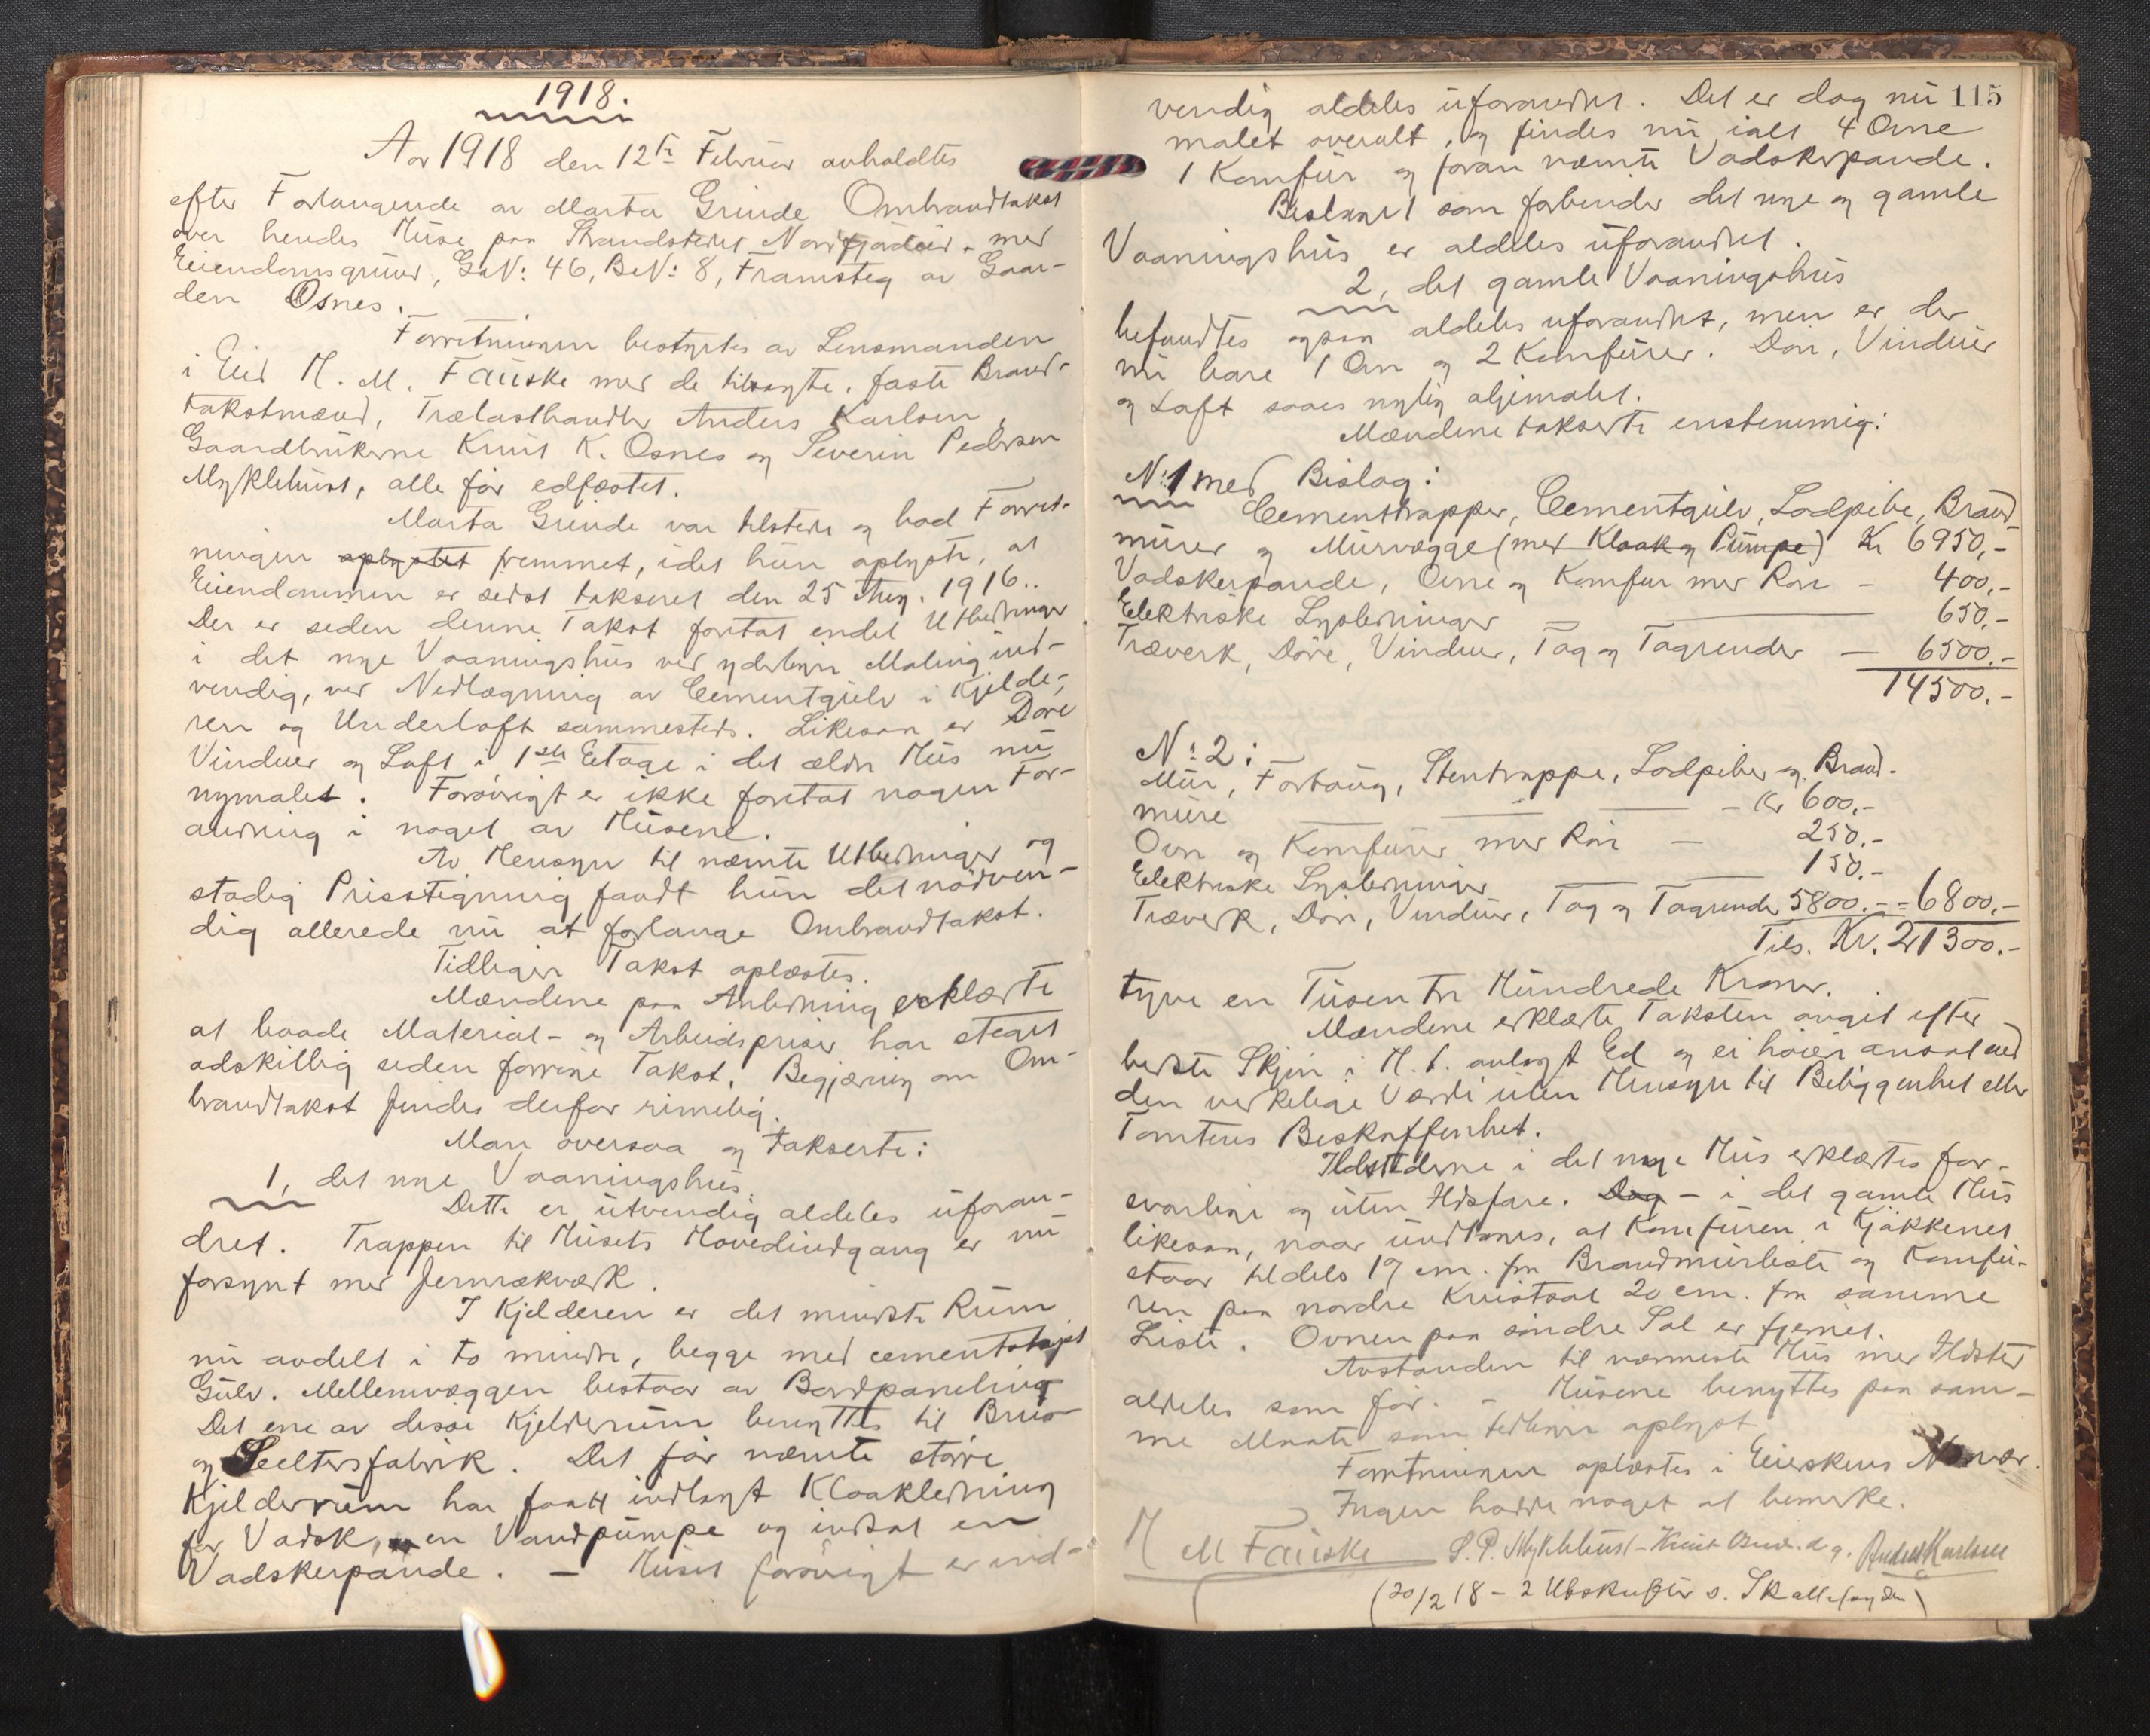 1918.
Aar 1918 den 12te Februar avholdtes
efter Forlangende av Marta Grinde Ombrandtakst
over hendes Huse paa Strandstedet Nordfjordeid med
Eiendomsgrund, G.N: 46, B.N: 8, Framsteg av Gaar-
den Osnes.
Forretningen bestyrtes av Lensmanden
i Eid H. M. Fauske med de tilsagte, faste Brand-
takstmænd, Trælasthandler Anders Karlsen,
Gaardbrukerne Knut K. Osnes og Severin Pedersen
Myklebust, alle før edfæstet.
Marta Grinde var tilstede og bad Forret-
ningen oplystet fremmet, idet hun oplyste, at
Eiendommen er sidst takseret den 25 Aug. 1916..
Der er siden denne Takst foretat endel Utbedringer
i det nye Vaaningshus ved yderligere Maling ind-
vendig, ved Nedlægning av Cementgulv i Kjelde-
ren og Underloft sammesteds. Likesaa er Døre
Vinduer og Loft i 1ste Etage i det ældre Hus nu
nymalet. Forøvrigt er ikke foretat nogen For-
andring i noget av Husene.
Av Hensyn til nævnte Utbedringer og
stadig Prisstigning fandt hun det nødven-
dig allerede nu at forlange Ombrandtakst.
Tidligere Takst oplæstes.
Mændene paa Anledning erklærte
at baade Material- og Arbeidspriser har steget
adskillig siden forrine Takst. Begjæring om Om-
brandtakst findes derfor rimelig.
Man oversaa og takserte:
1, det nye Vaaningshus.
Dette er utvendig aldeles uforan-
dret. Trappen til Husets Hovedindgang er nu
forsynt med Jernrækværk.
I Kjelderen er det mindste Rum
nu avdelt i to mindre, begge med cementstøpt
Gulv. Mellemvæggen bestaar av Bordpaneling
Det ene av disse Kjelderrum benyttes til Brus-
og Seltersfabrik. Det før nævnte større
Kjelderrum har faatt indlagt Kloakledning
for Vadsk, en Vandpumpe og indsat en
Vadskerpande. - Huset forøvrigt er ind-
115
vendig aldeles uforandret. Det er dog nu
malet overalt, og findes nu ialt 4 Ovne
1 Komfur og foran nævnte Vadskerpande.
Bislaget som forbinder det nye og gamle
Vaaningshus er aldeles uforandret.
2, det gamle Vaaningshus
befandtes ogsaa aldeles uforandret, men er der
nu bare 1 Ovn og 2 Komfurer. Døre, Vinduer
og Loft saaes nylig oljemalet.
Mændene takserte enstemmig:
N: 1 med Bislag:
Cementtrapper, Cementgulv, Lodpibe, Brand-
murer og Murvægge (med Kloak og Pumpe) Kr 6950,-
Vadskerpande, Ovne og Komfur med Rør - 400,-
Elektriske Lysledninger - 650,-
Træverk, Døre, Vinduer, Tag og Tagrender - 6500.-
14500.-
N: 2:
Mur, Fortaug, Stentrappe, Lodpiber og Brand-
mure - Kr 600.-
Ovn og Komfurer med Rør - 250.-
Elektriske Lysledninger - 150.-
Træverk, Døre, Vinduer, Tag og Tagrender 5800.- = 6800.-
Tils. Kr. 21300.-
tyve en Tusen tre Hundrede Kroner.
Mændene erklærte Taksten avgit efter
bedste Skjøn i H. t. avlagt Ed og ei høiere ansat end
den verkelige Værdi uten Hensyn til Beliggenhet eller
Tomtens Beskaffenhet.
Ildstederne i det nye Hus erklærtes for-
svarlige og uten Ildsfare. Dog - i det gamle Hus
likesaa, naar undtas, at Komfuren i Kjøkkenet
staar tildels 19 cm. fra Brandmurliste og Komfu-
ren paa nordre Kvistsal 20 cm. fra samme
Liste. Ovnen paa søndre Sal er fjernet.
Avstanden til nærmeste Hus med Ildsted
aldeles som før. - Husene benyttes paa sam-
me Maate som tidligere oplyst
Forretningen oplæstes i Eierskens Nærvær.
Ingen hadde noget at bemerke.
H M Fauske S. P. Myklebust - Knut Osnes. Anders Karlsen
(20/2 18 - 2 Utskrifter s.